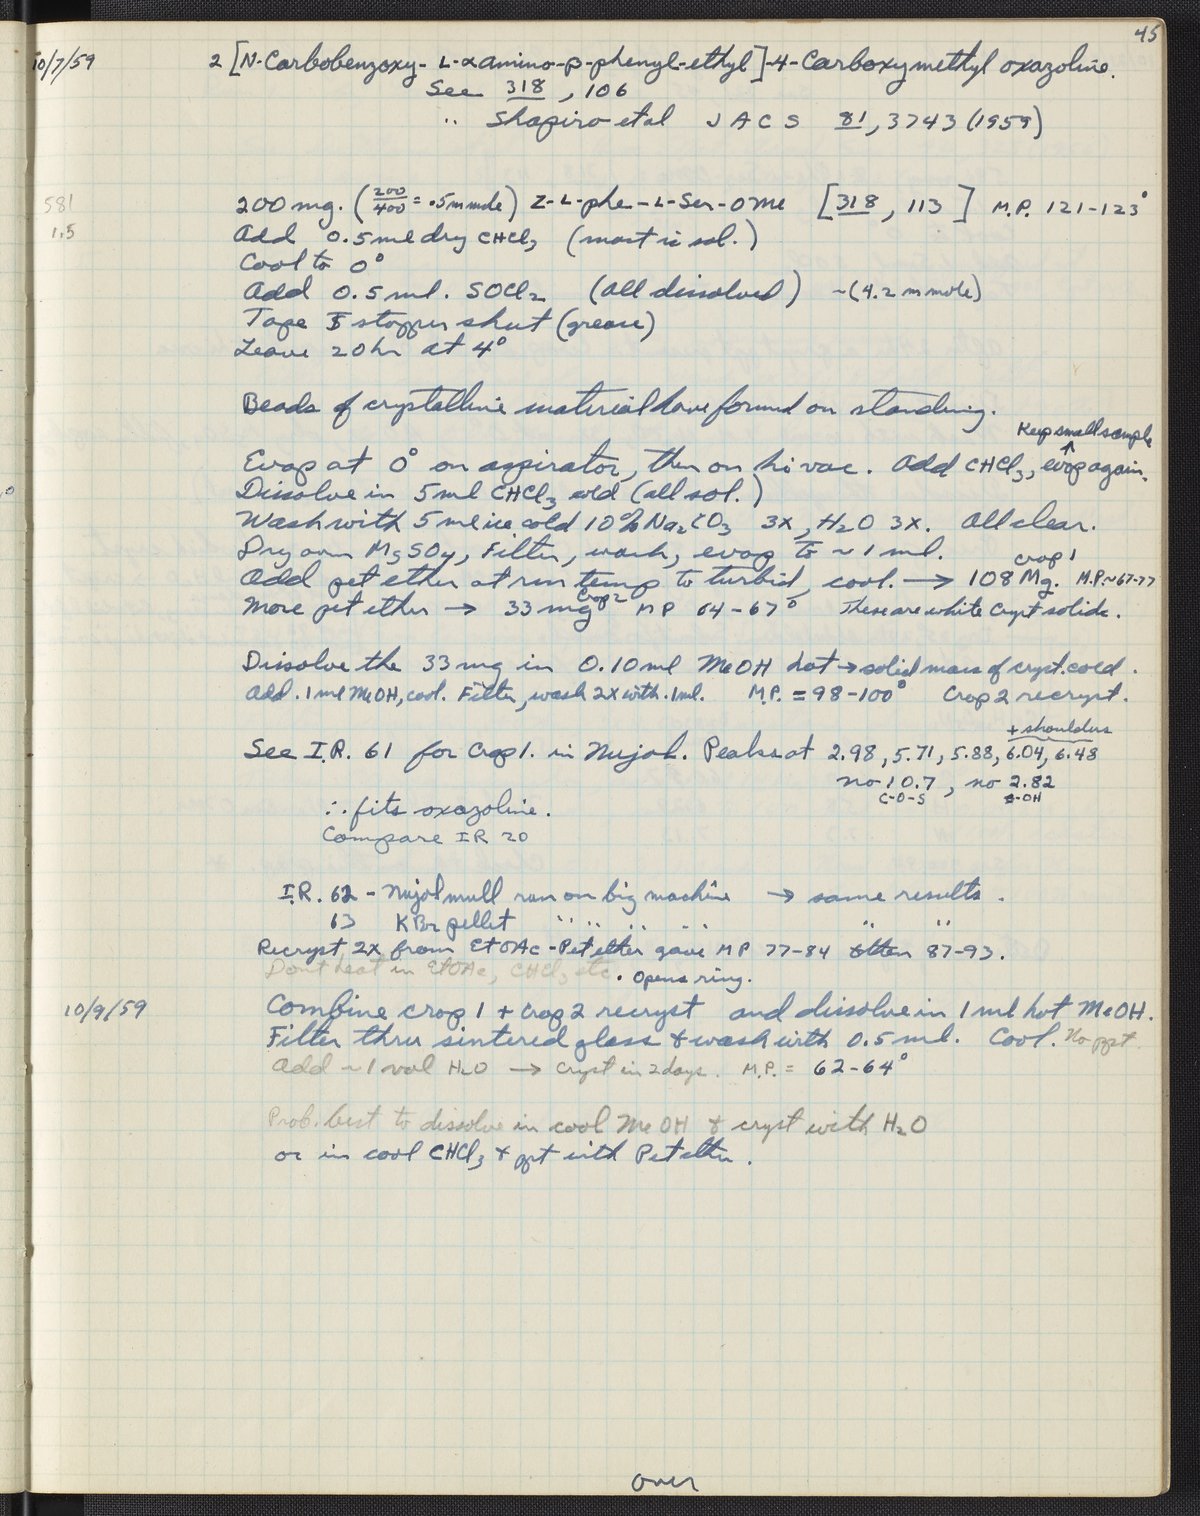 45
10/7/59 2 [N-Carbobenzoxy- L-α amino-β-phenyl-ethyl]-4-Carboxymethyl oxazoline.
See 318, 106
" Shapiro et al J A C S 81, 3743 (1959)
581 200 mg. (200/400 = .5 mmole) Z-L-phe-L-Ser-OMe [318, 113] M.P. 121-123°
1.5 Add 0.5 ml dry CHCl3 (most is sol.)
Cool to 0°
Add 0.5 ml. SOCl2 (all dissolved) ~(4.2 mmole)
Tape stopper shut (grease)
Leave 20 hr at 4°
Beads of crystalline material have formed on standing.
Keep small sample
Evap at 0° on aspirator, then on hi vac. Add CHCl3, evap again.
Dissolve in 5 ml CHCl3 cold (all sol.)
Wash with 5 ml ice cold 10% Na2CO3 3x, H2O 3x. All clear.
Dry over MgSO4, Filter, wash, evap to ~ 1 ml.
Add pet ether at rm temp to turbid, cool. → 108 Mg. crop 1 M.P. ~67-77
More pet ether → 33 mg crop 2 MP 64-67° These are white cryst solids.
Dissolve the 33 mg in 0.10 ml MeOH hot → solid mass of cryst. cold.
Add .1 ml MeOH, cool. Filter, wash 2x with .1 ml. M.P. = 98-100° Crop 2 recryst.
+ shoulders
See I.R. 61 for Crop 1. in Nujol. Peaks at 2.98, 5.71, 5.88, 6.04, 6.48
no 10.7, no 2.82
C-O-S -OH
∴ fits oxazoline.
Compare IR 20
I.R. 62 - Nujol mull run on big machine → same results.
63 KBr pellet " " " " " "
Recryst 2x from EtOAc-Pet ether gave MP 77-84 then 87-93.
Don't heat in EtOAc, CHCl3 etc. Opens ring.
10/9/59 Combine crop 1 + crop 2 recryst and dissolve in 1 ml hot MeOH.
Filter thru sintered glass & wash with 0.5 ml. Cool. No ppt.
Add ~1 vol H2O → Cryst in 2 days. M.P. = 62-64°
Prob. best to dissolve in cool MeOH & cryst with H2O
or in cool CHCl3 & ppt with Pet ether.
over